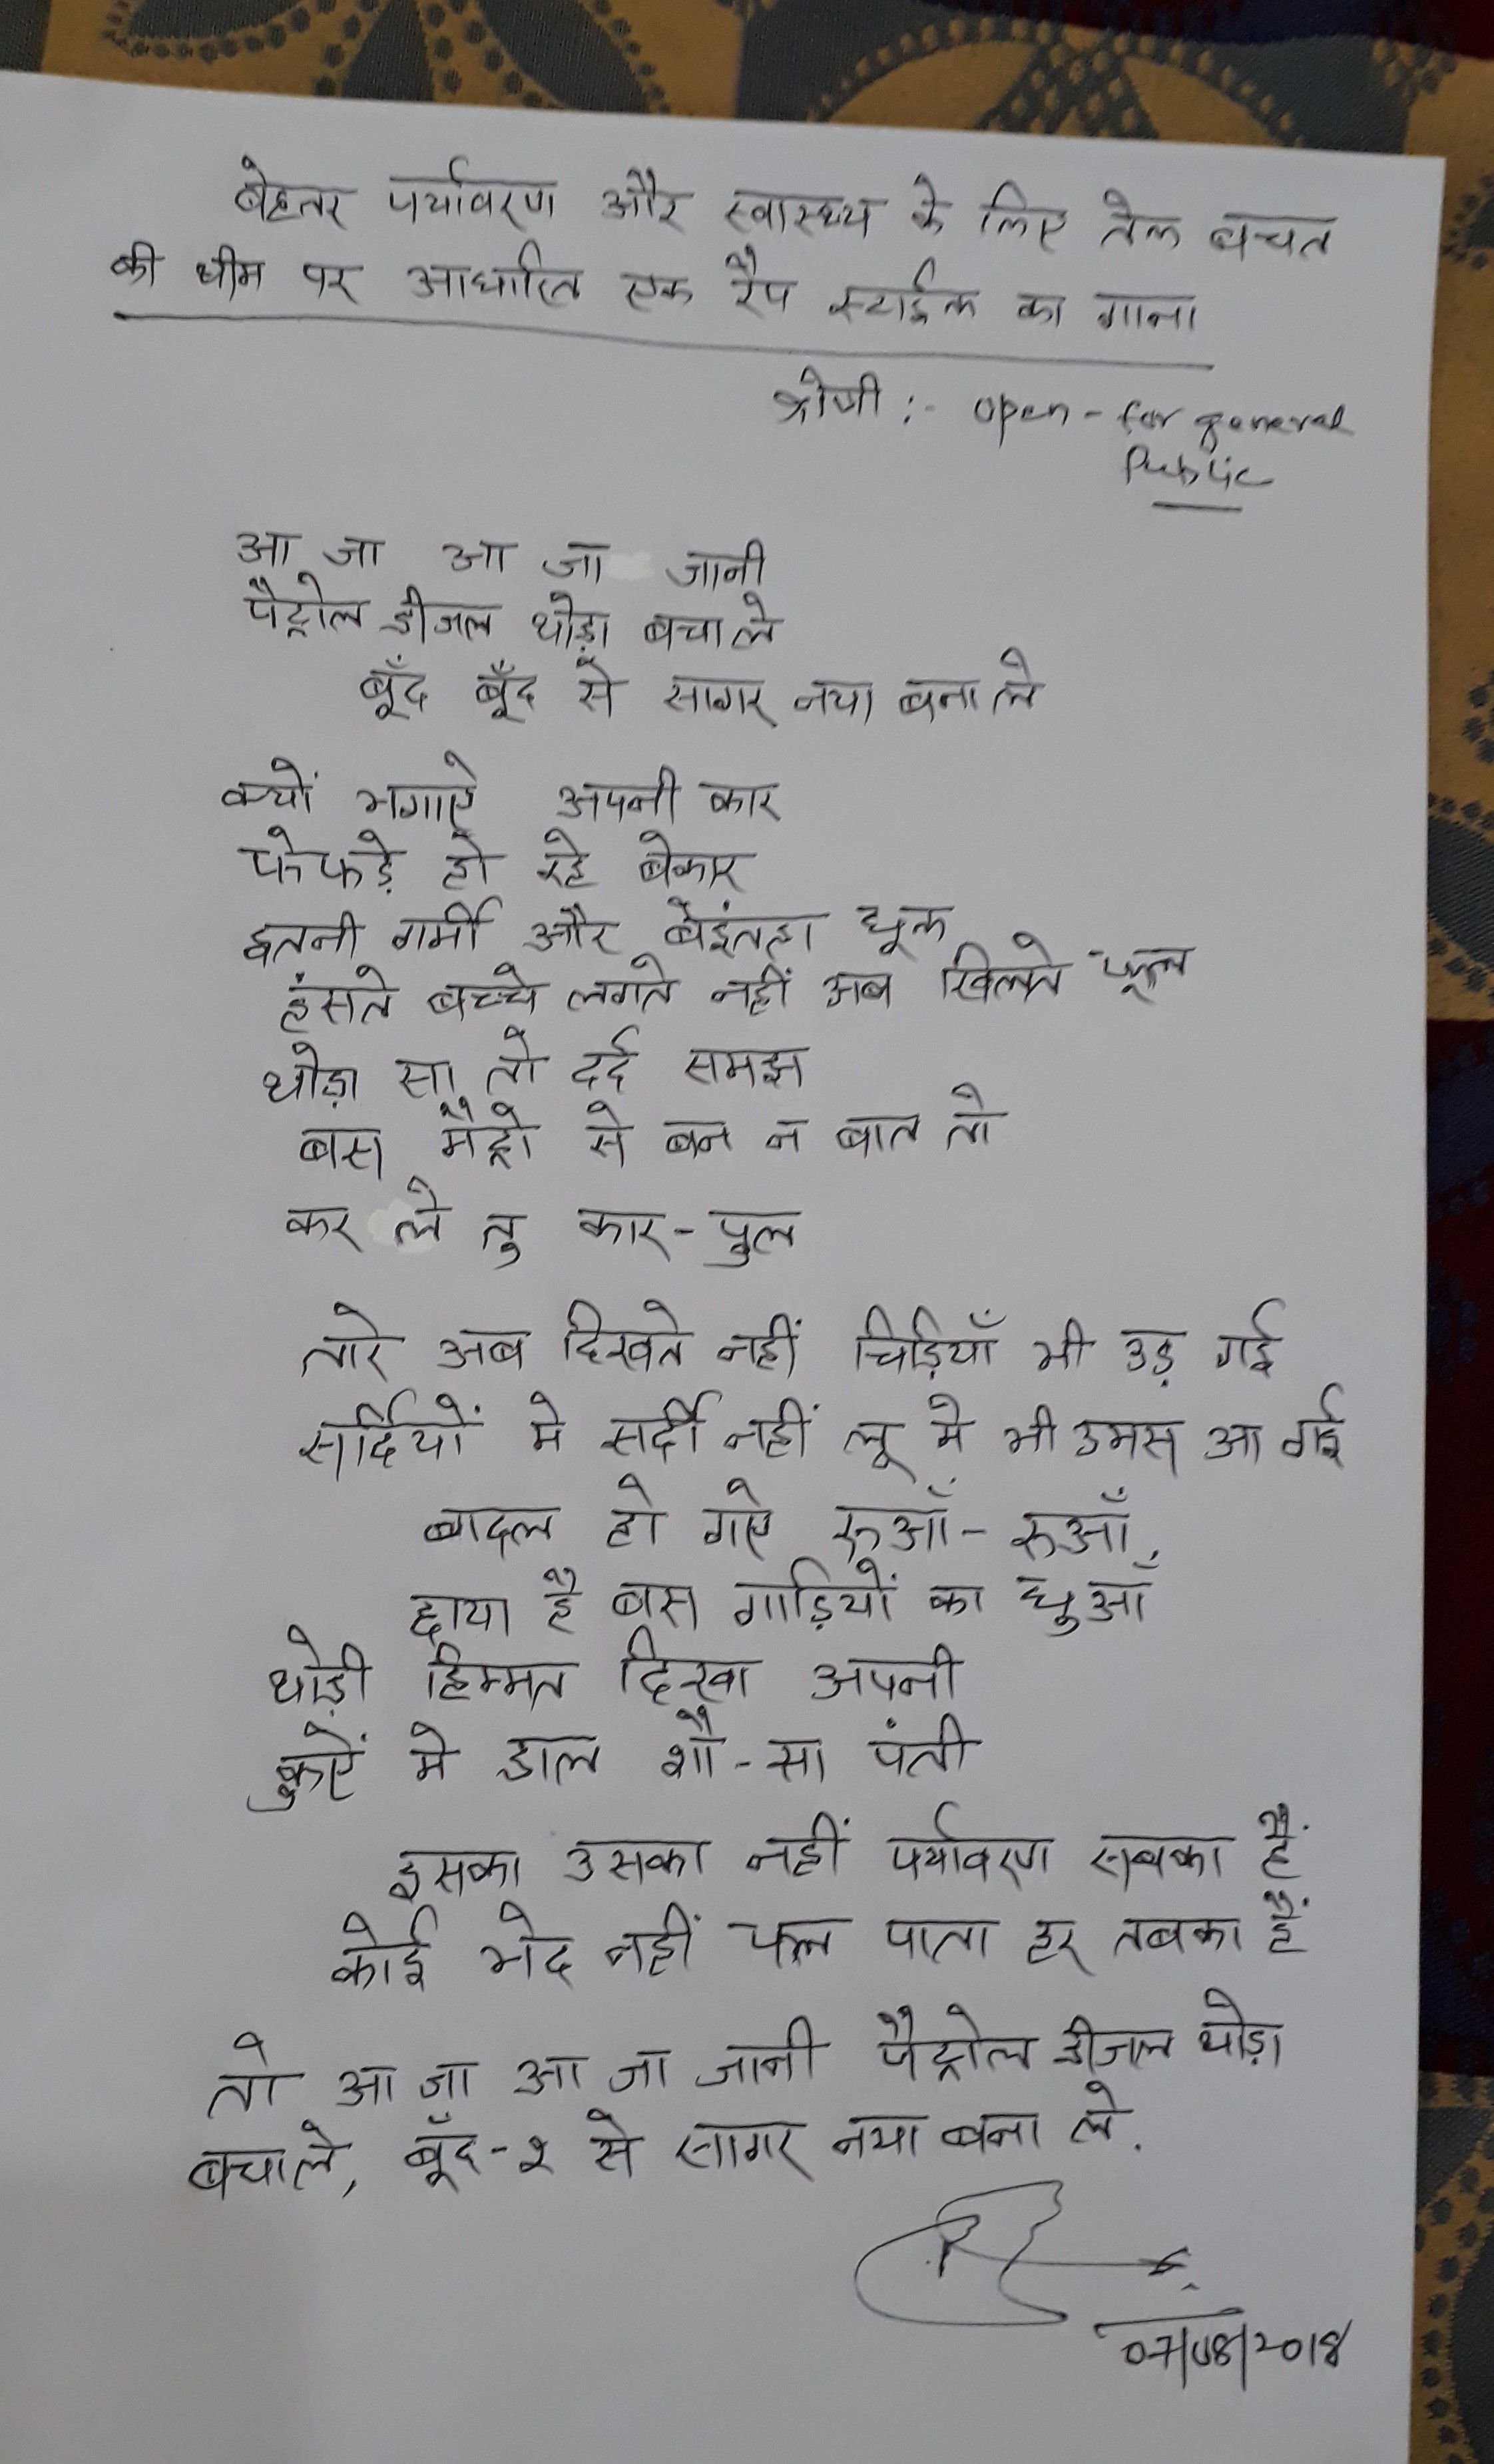 बेहतर पर्यावरण और स्वास्थ्य के लिए तेल बचत
की थीम पर आधारित एक रैप स्टाईल का गाना
श्रेणी :- open - for general
Public
आ जा आ जा जानी
पैट्रोल डीजल थोड़ा बचा ले
बूँद बूँद से सागर नया बना ले
क्यों भगाऐ अपनी कार
फेफड़े हो रहे बेकार
इतनी गर्मी और बेइंतहा धूल
हंसते बच्चे लगते नहीं अब खिलते फूल
थोड़ा सा तो दर्द समझ
बस मैट्रो से बन न बात तो
कर ले तु कार-पुल
तारे अब दिखते नहीं चिड़ियाँ भी उड़ गई
सर्दियों मे सर्दी नहीं लू मे भी उमस आ गई
बादल हो गऐ रुआँ - रुआँ,
छाया है बस गाड़ियों का धुआँ
थोड़ी हिम्मत दिखा अपनी
कुऐं मे डाल शौ-सा पंती
इसका उसका नहीं पर्यावरण सबका हैं
कोई भेद नहीं फल पाता हर तबका हैं
तो आ जा आ जा जानी पैट्रोल डीजल थोड़ा
बचा ले, बूँद-२ से सागर नया बना ले.
07/08/2018